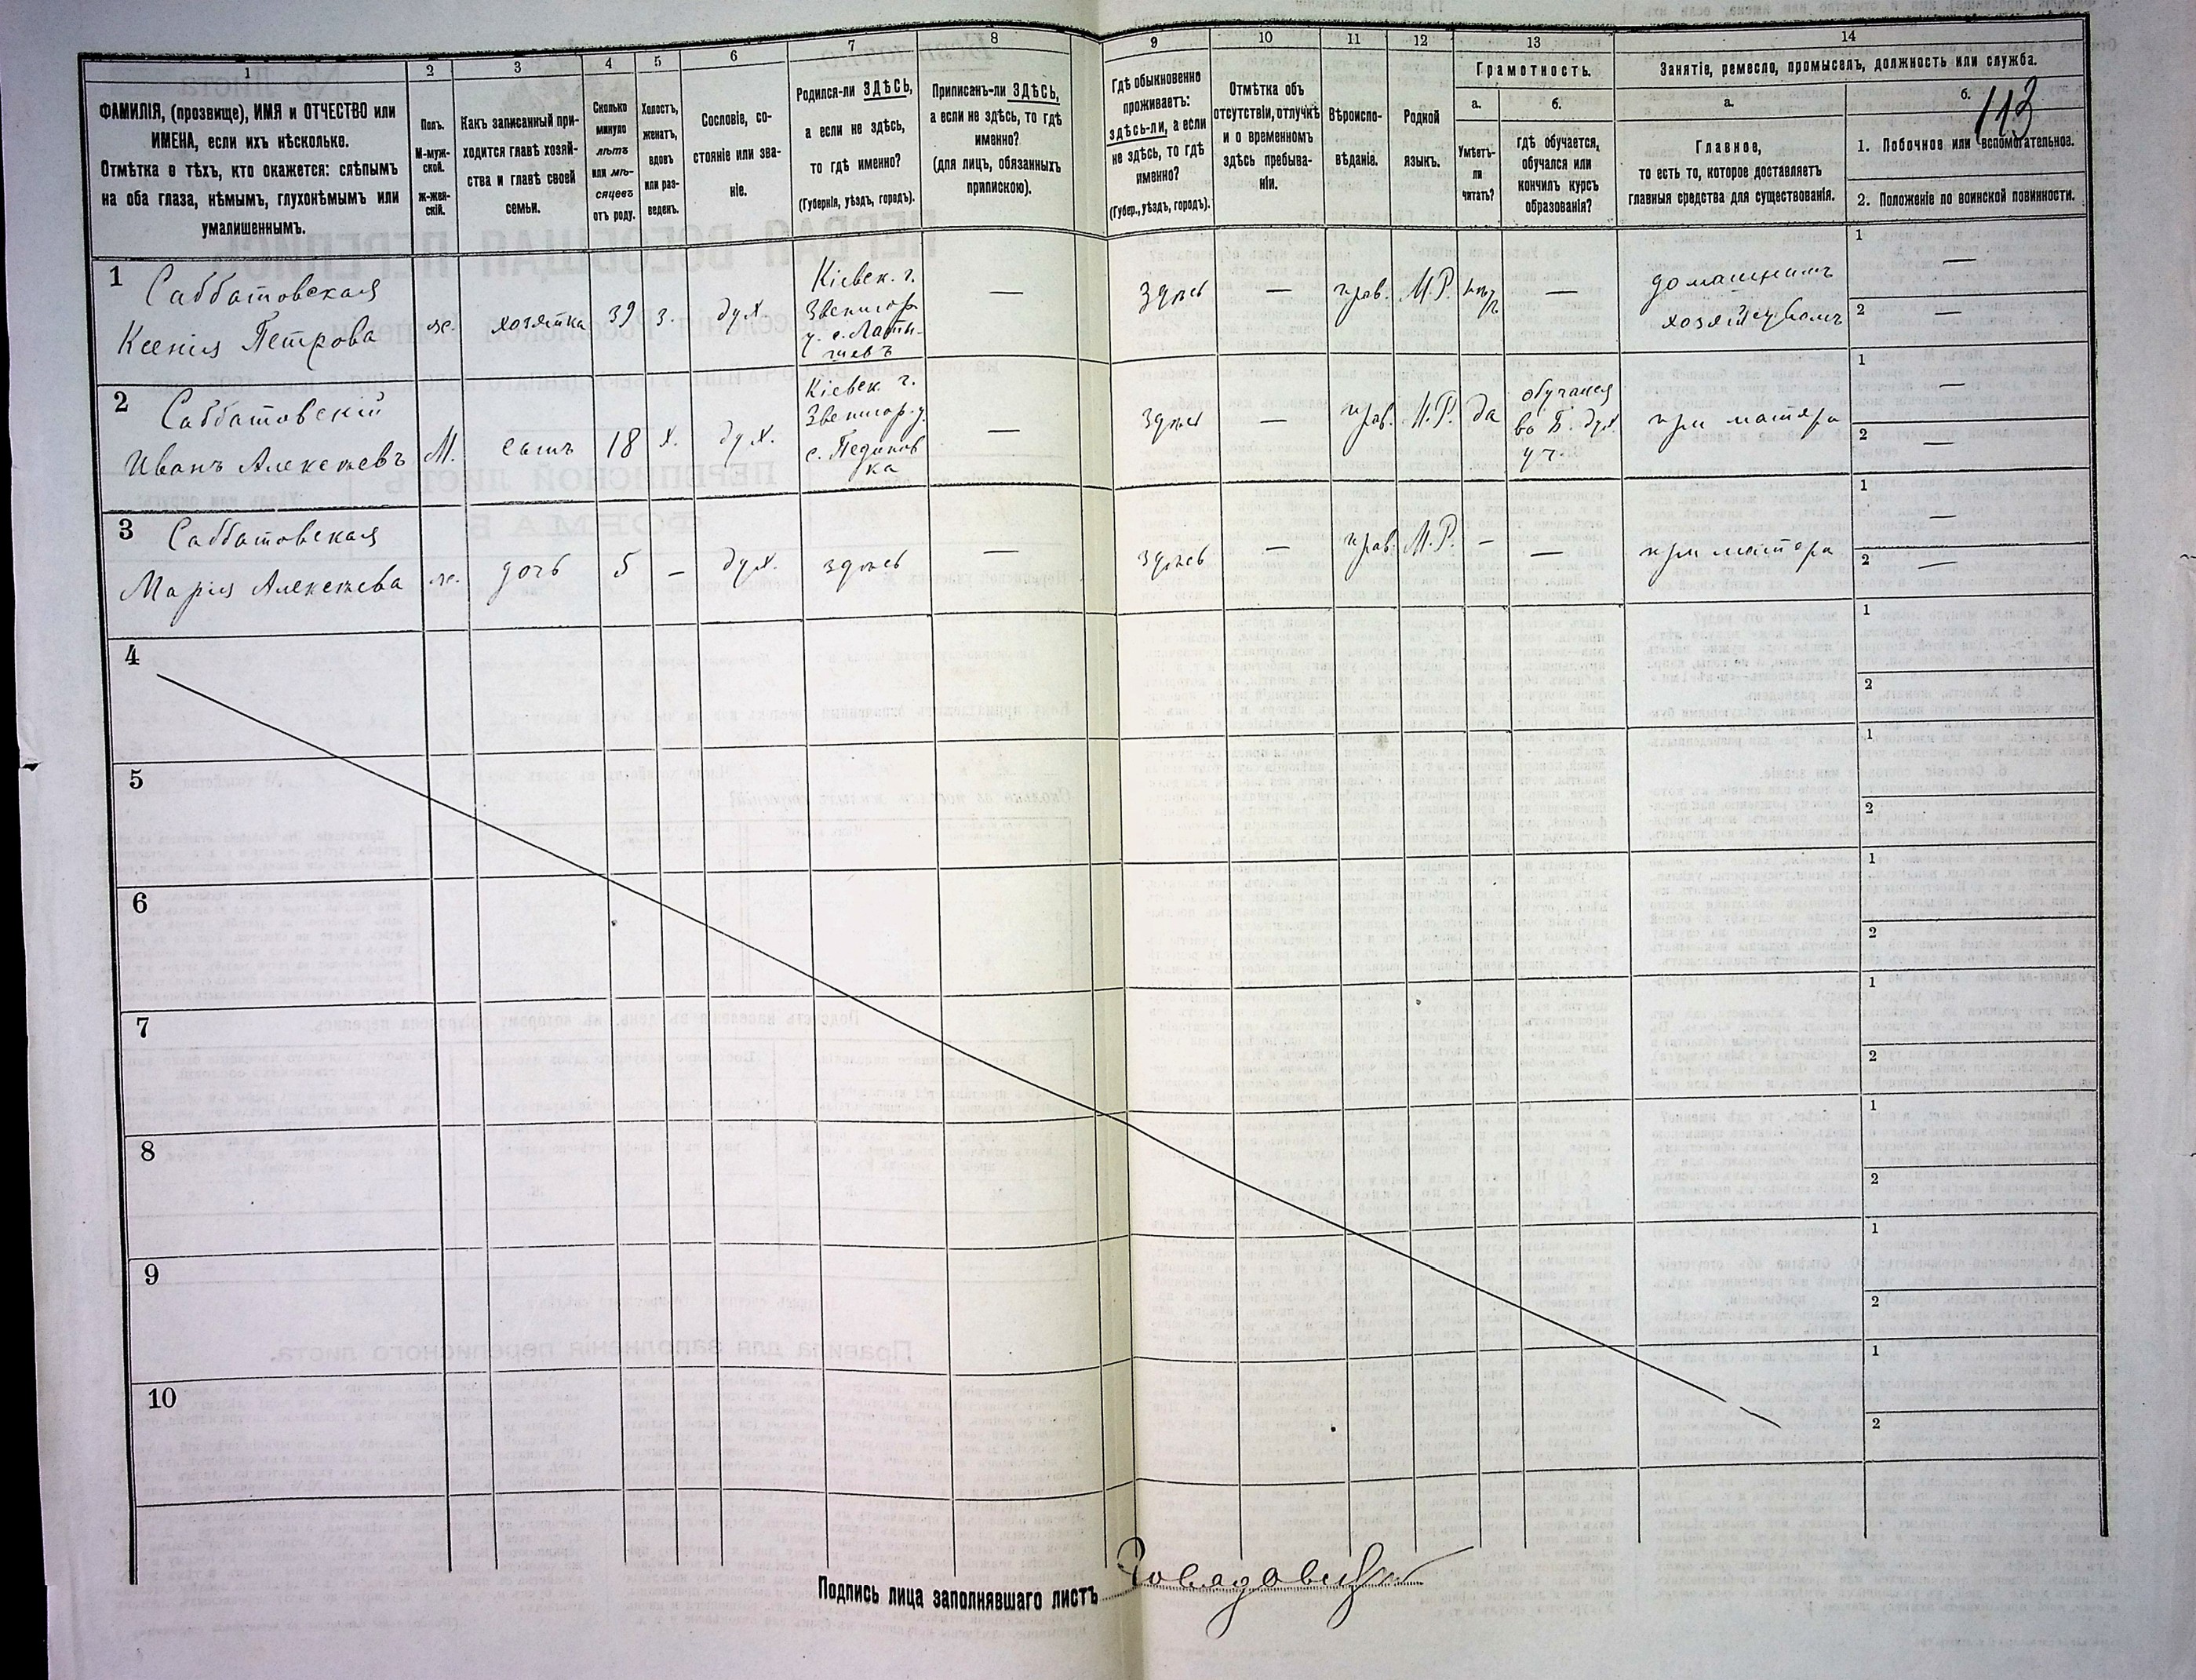 113
1
2
3
4
5
6
7
8
9
10
11
12
13
14
ФАМИЛІЯ, (прозвище), ИМЯ и ОТЧЕСТВО или
ИМЕНА, если ихъ нѣсколько.
Отмѣтка о тѣхъ, кто окажется: слѣпымъ
на оба глаза, нѣмымъ, глухонѣмымъ или
умалишеннымъ.
Полъ.
М-муж-
ской.
ж-жен-
скій.
Какъ записанный при-
ходится главѣ хозяй-
ства и главѣ своей
семьи.
Сколько
минуло
лѣтъ
или мѣ-
сяцевъ
отъ роду.
Холостъ,
женатъ,
вдовъ
или раз-
веденъ.
Сословіе, со-
стояніе или зва-
ніе.
Родился-ли ЗДѢСЬ,
а если не здѣсь,
то гдѣ именно?
(Губернія, уѣздъ, городъ).
Приписанъ-ли ЗДѢСЬ,
а если не здѣсь, то гдѣ
именно?
(для лицъ, обязанныхъ
припискою).
Гдѣ обыкновенно
проживаетъ:
здѣсь-ли, а если
не здѣсь, то гдѣ
именно?
(Губер., уѣздъ, городъ).
Отмѣтка объ
отсутствіи, отлучкѣ
и о временномъ
здѣсь пребыва-
ніи.
Вѣроиспо-
вѣданіе.
Родной
языкъ.
Грамотность.
а.
Умѣетъ-
ли
читать?
б.
гдѣ обучается,
обучался или
кончилъ курсъ
образованія?
Занятіе, ремесло, промыселъ, должность или служба.
а.
Главное,
то есть то, которое доставляетъ
главныя средства для существованія.
б.
1. Побочное или вспомогательное.
2. Положеніе по воинской повинности.
1
Саббатовская
Ксенія Петрова
же.
хозяйка
39
з.
дух.
Кіевск. г.
Звенигор.
—
Здѣсь
—
прав.
М.Р.
—
домашнимъ
хозяйствомъ
1
—
2
—
2
Саббатовскій
Иванъ Алексѣевъ
М.
сынъ
18
х.
дух.
Кіевск. г.
Звенигор. у.
с. Пединов
ка
—
Здѣсь
—
прав.
М.Р.
да
обучался
въ Б. дух.
уч.
при матери
1
—
2
—
3
Саббатовская
Марія Алексѣева
же.
дочь
5
—
дух.
здѣсь
—
здѣсь
—
прав.
М.Р.
—
—
при матери
1
—
2
—
4
1
2
5
1
2
6
1
2
7
1
2
8
1
2
9
1
2
10
1
2
Подпись лица заполнявшаго листъ